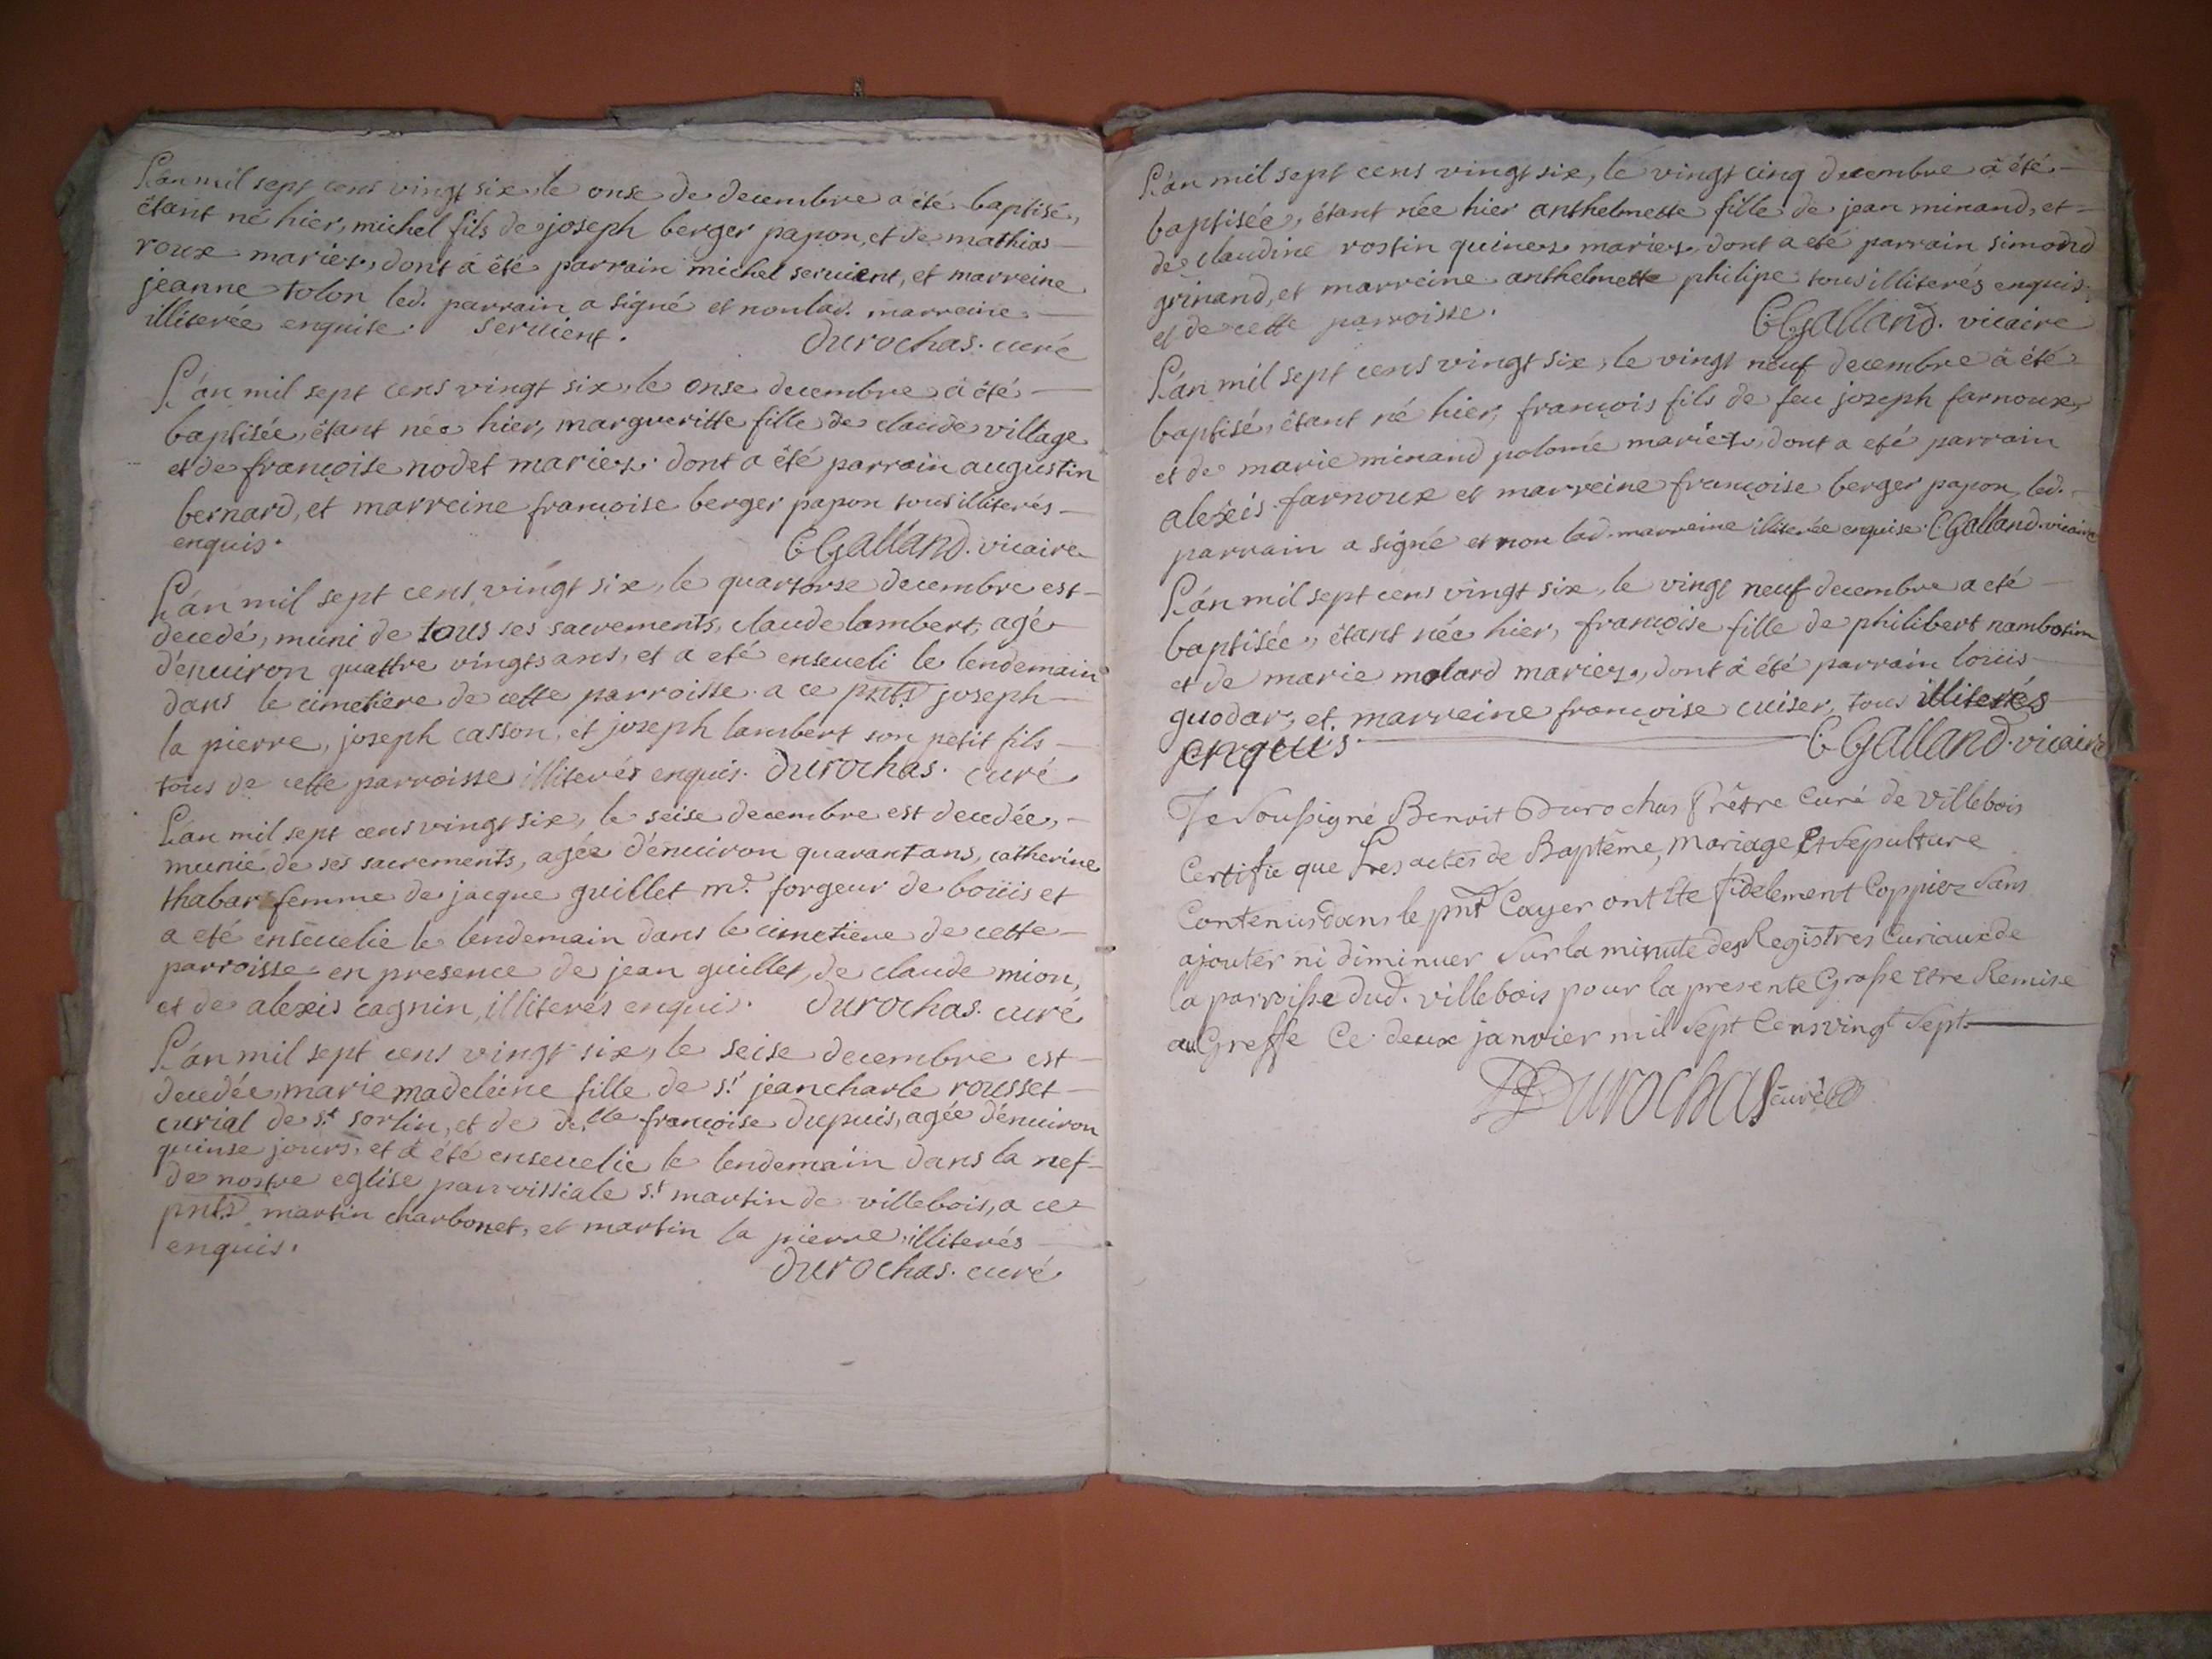 L'an mil sept cens vingt six, le onse de decembre a été baptisé,
étant né hier, michel fils de joseph berger papon, et de mathias
roux mariez, dont á été parrain michel seruient, et marreine
jeanne tolon led. parrain a signé et non lad. marreine
illiterée enquise. seruient.
durochas. curé
L'an mil sept cens vingt six, le onse decembre á été
baptisée, étant née hier, margueritte fille de claude village
et de françoise nodet mariez. dont a été parrain augustin
bernard, et marreine françoise berger papon tous illiterés
enquis.
CGalland. vicaire
L'an mil sept cens vingt six, le quartorse decembre est
decedé, muni de tous ses sacrements, claude lambert, agé
d'enuiron quattre vingts ans, et a eté enseueli le lendemain
dans le cimetiere de cette parroisse. a ce pnts joseph
la pierre, joseph casson, et joseph lambert son petit fils
tous de cette parroisse illiterés enquis. durochas. curé
L'an mil sept cens vingt six, le seise decembre est decedée,
munie de ses sacrements, agée d'enuiron quarant ans, catherine
thabar femme de jacque guillet md. forgeur de boüis et
a eté enseuelie le lendemain dans le cimetiere de cette
parroisse en presence de jean guillet, de claude mion,
et de alexis cagnin, illiterés enquis. durochas. curé
L'an mil sept cens vingt six, le seise decembre est
decedée, marie madeleine fille de sr. jean charle rousset
curial de st sorlin, et de delle françoise dupuis, agée d'enuiron
quinse jours, et á été enseuelie le lendemain dans la nef
de nostre eglise parroissiale st martin de villebois, a ce
pnts martin charbonet, et martin la pierre, illiterés
enquis.
durochas. curé
L'an mil sept cens vingt six, le vingt cinq decembre á été
baptisée, étant née hier anthelmette fille de jean minand, et
de claudine rostin quinez mariez, dont a eté parrain simond
grinand, et marreine anthelmette philipe tous illiterés enquis.
et de cette parroisse.
CGalland. vicaire
L'an mil sept cens vingt six, le vingt neuf decembre á été
baptisé, étant né hier, françois fils de feu joseph farnoux,
et de marie minand polome mariez, dont a eté parrain
alexis farnoux et marreine françoise berger papon, led.
parrain a signé et non lad. marreine illiterée enquise. CGalland. vicaire
L'an mil sept cens vingt six, le vingt neuf decembre a eté
baptisée, étant née hier, françoise fille de philibert nambotin
et de marie molard mariez, dont á été parrain loüis
guodar, et marreine françoise cuiser, tous illiterés
enquis.
CGalland. vicaire
Je Soussigné Benoit Durochas Prêtre Curé de Villebois
Certifie que Les actes de Baptême, Mariage Et Sepulture
Contenus dans le pnt Cayer ont Ete fidelement Coppiez Sans
ajouter ni diminuer Sur la minute des Registres Curiaux de
la parroisse dud. villebois pour la presente Grosse Etre Remise
au Greffe Ce deux janvier mil Sept Cens vingt Sept.
BDurochas curé